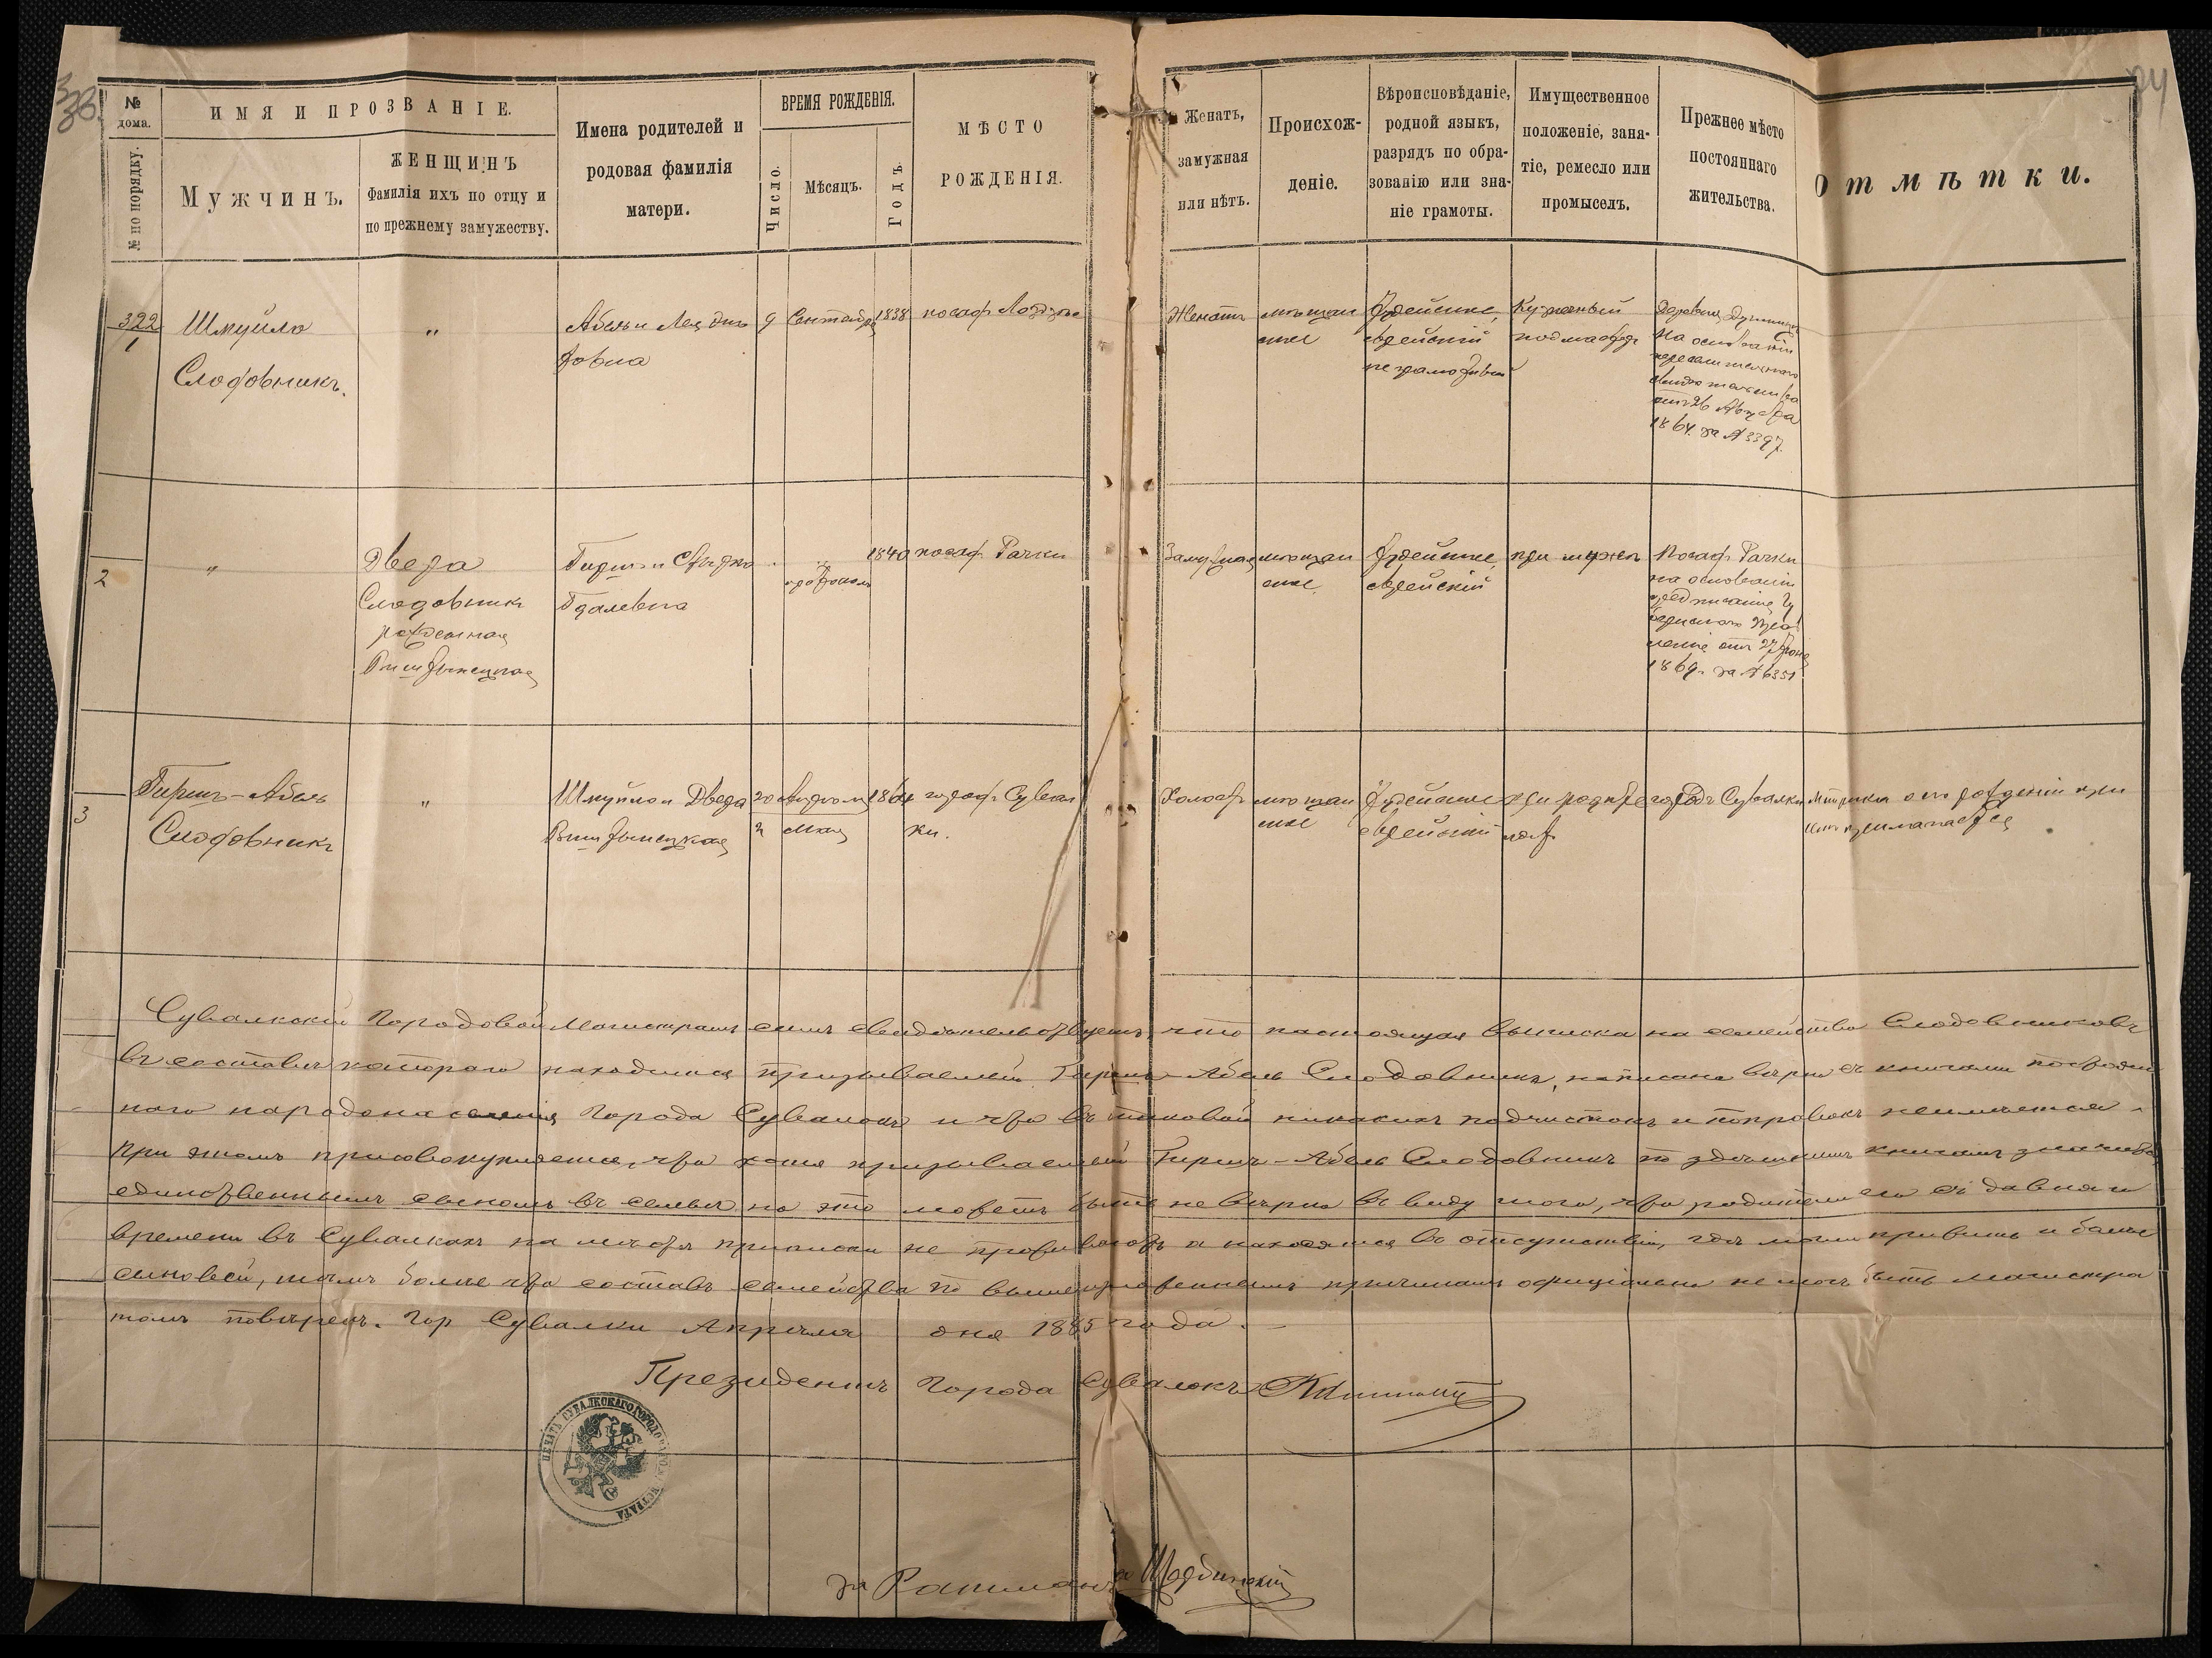 № дома.
№ по порядку.
ИМЯ И ПРОЗВАНІЕ.
Мужчинъ.
ЖЕНЩИНЪ
Фамилія ихъ по отцу и
по прежнему замужеству.
Имена родителей и
родовая фамилія
матери.
ВРЕМЯ РОЖДЕНІЯ.
Число.
Мѣсяцъ.
Годъ.
МѢСТО
РОЖДЕНІЯ.
Женатъ,
замужная
или нѣтъ.
Происхож-
деніе.
Вѣроисповѣданіе,
родной языкъ,
разрядъ по обра-
зованію или зна-
ніе грамоты.
Имущественное
положеніе, заня-
тіе, ремесло или
промыселъ.
Прежнее мѣсто
постояннаго
жительства.
Отмѣтки.
322
1
Шмуйло
Слодовникъ.
"
Абель и Лея
9
Сентября
1838
посадъ Лодзее
Женатъ
мѣщан
ское
Іудейское,
еврейскій
не грамотный
на основаніи
отъ 26
1864. за № 3397.
2
"
Двера
Слодовникъ
рожденная
Гирш и
1840
посад. Рачки
Замужная
мѣщан
ское
Іудейское,
еврейскій
при мужѣ
Посад. Рачки
на основаніи
предписанія Гу
бернскаго Прав
ленія отъ 27 Іюня
1869. за № 6351
3
Гиршъ-Абель
Слодовникъ
"
Шмуйло и Двера
20
2
Мая
1864
город Сувал
ки.
Холост
мѣщан
ское
Іудейское
еврейскій
при родите
городъ Сувалки
Метрика о его рожденіи при
Сувалкскій Городовой Магистратъ симъ свидѣтельствуетъ, что настоящая выписка на семейство Слодовниковъ
въ составѣ котораго находился призываемый Гиршъ-Абель Слодовникъ, написана вѣрно съ книгами постоян
наго народонаселенія Города Сувалокъ и что въ таковой никакихъ подчистокъ и поправокъ неимѣется.
При этомъ присовокупляется, что хотя призываемый Гиршъ-Абель Слодовникъ по здѣшнимъ книгамъ значится
единственнымъ сыномъ въ семьѣ но это можетъ быть не вѣрно въ виду того, что родители его съ давняго
времени въ Сувалкахъ на мѣстѣ приписки не проживаютъ а находятся въ отсутствіи, гдѣ могли прижить и болѣе
сыновей, тѣмъ болѣе что составъ семейства по вышеизложеннымъ причинамъ офиціально не могъ быть Магистра
томъ повѣренъ. Гор Сувалки Апрѣля дня 1885 года.
Президентъ Города Сувалокъ
ПЕЧАТЬ СУВАЛКСКАГО ГОРОДОВАГО МАГИСТРАТА
за Ратмана